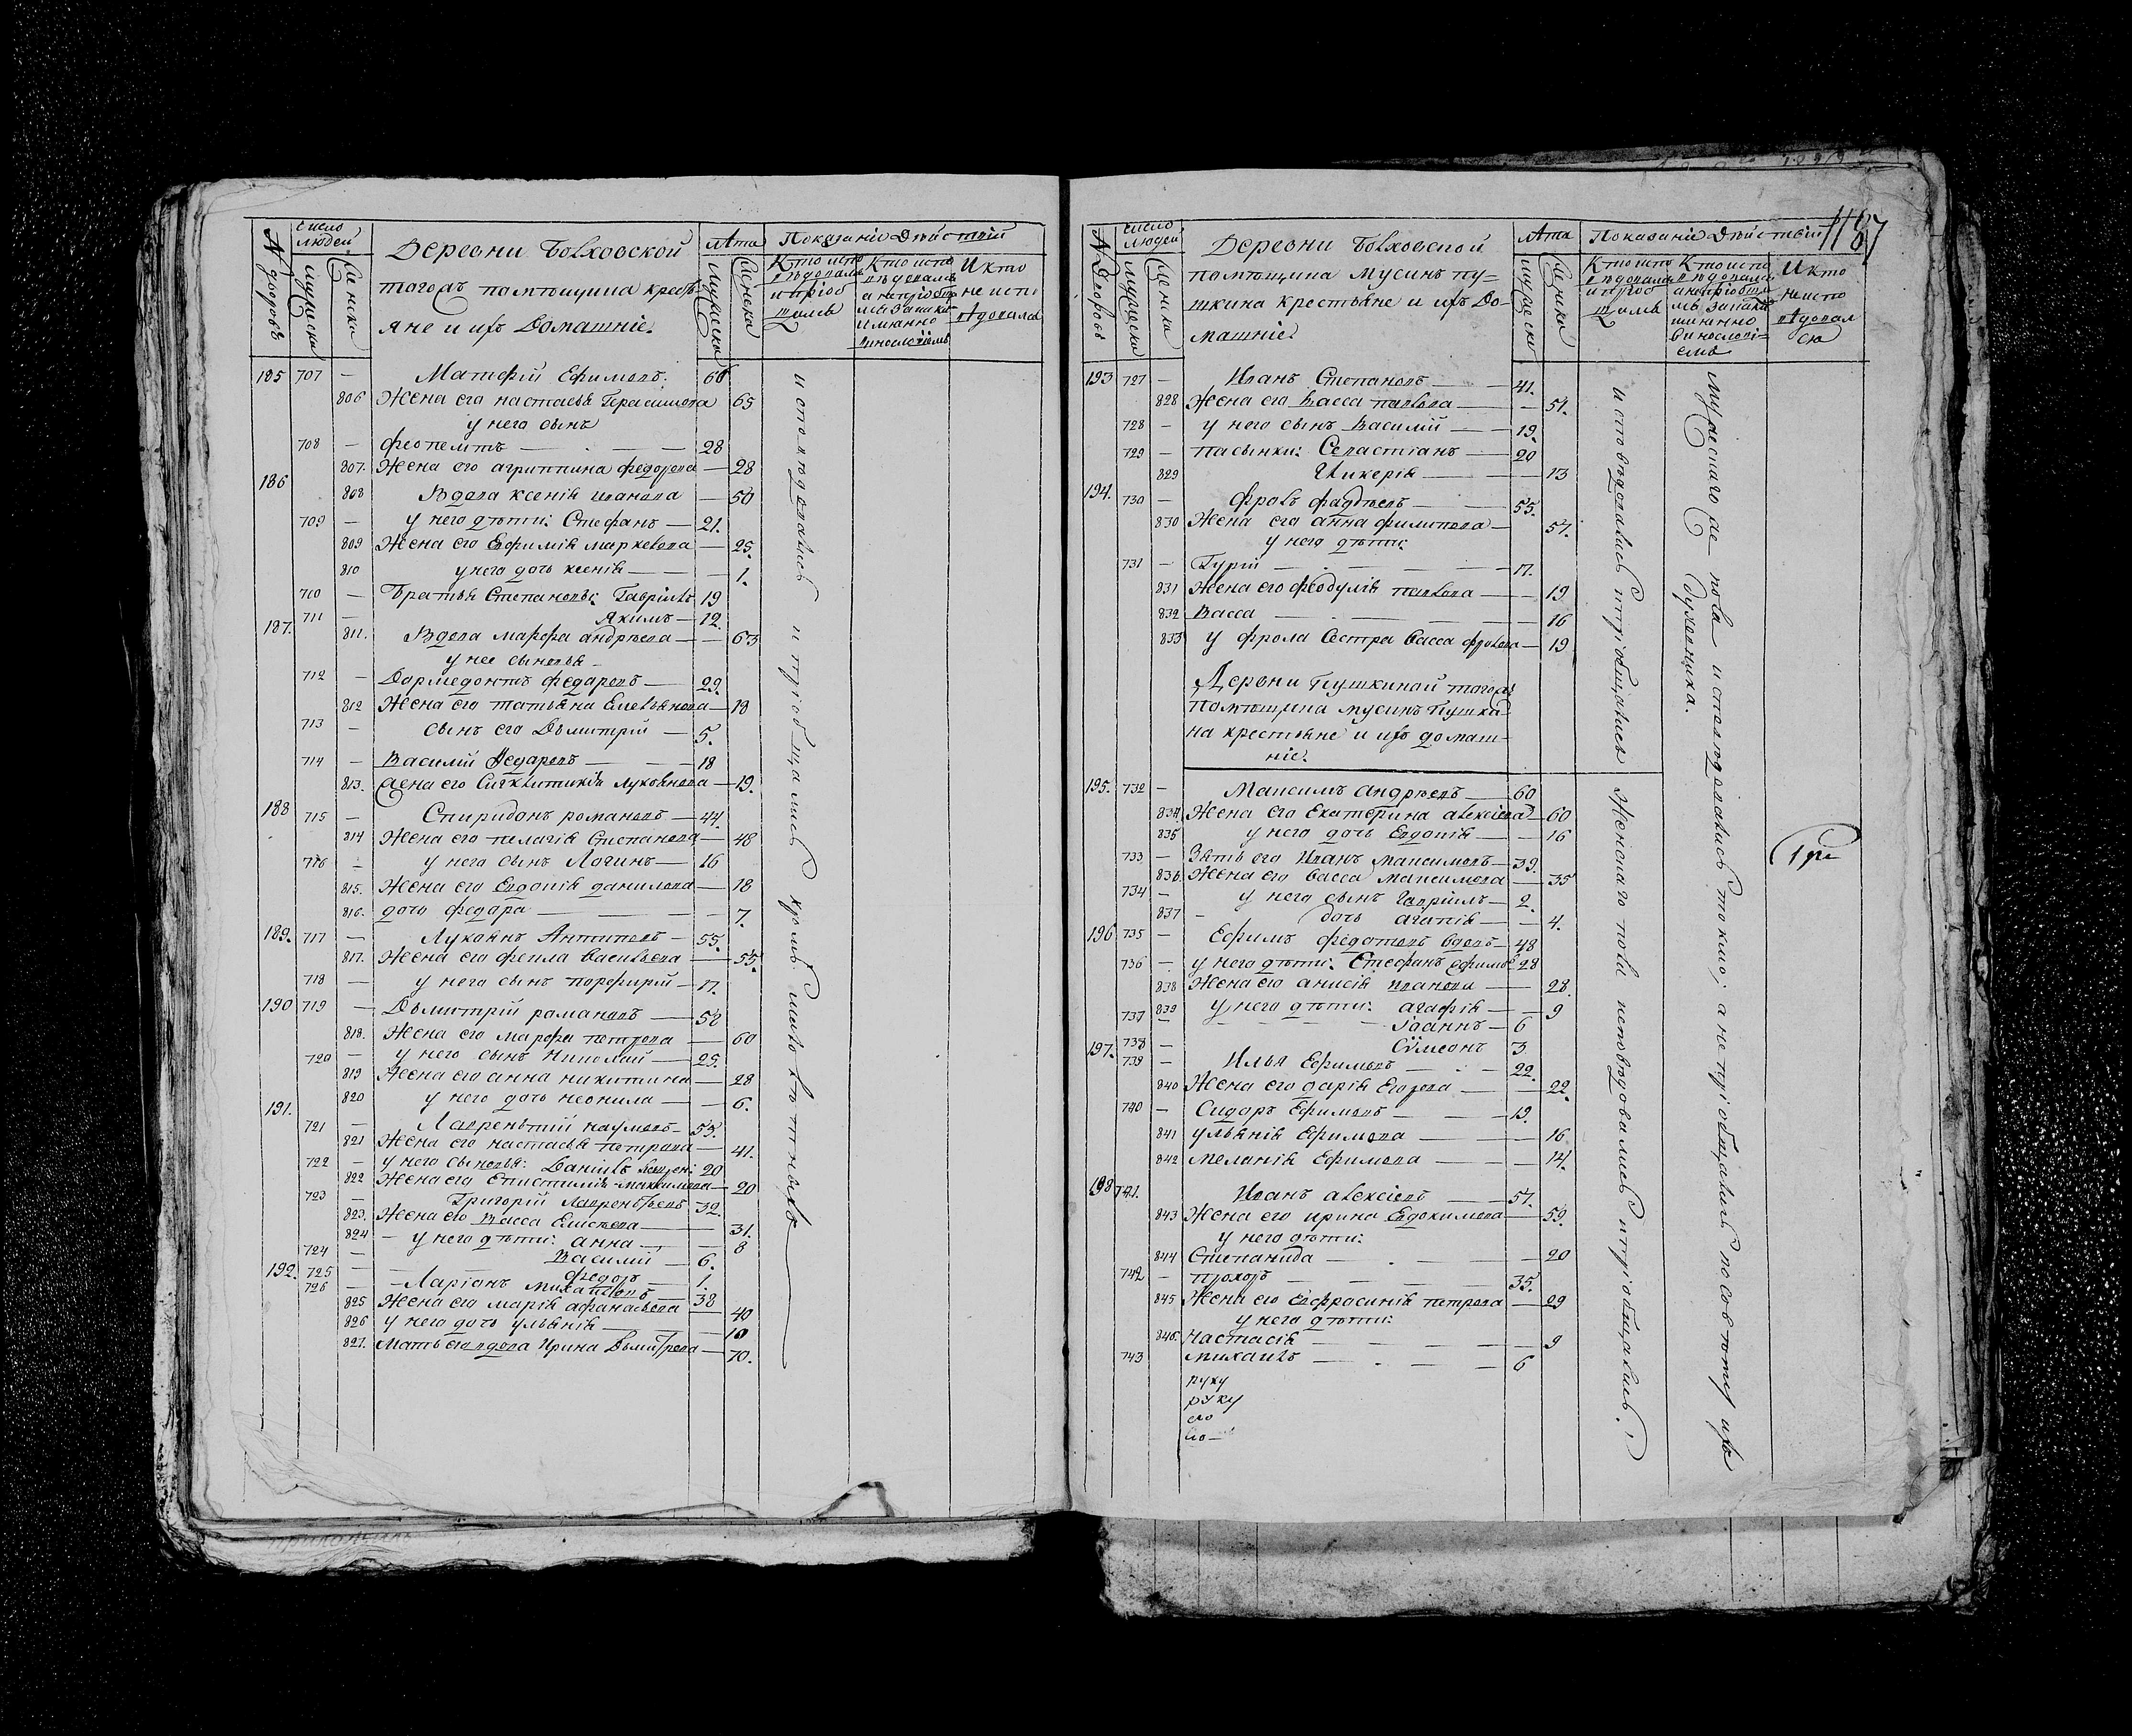 № дворовъ
Число людей
Мужеска
Женска
Деревни Болховской
тогожъ помѣщика кресть
яне и ихъ Домашніе.
Лѣта
Мужеска
Женска
Показаніе Дѣйствій
Кто испо
вѣдовалъ
и пріоб
щался
Кто испо
вѣдовался
а непріобщ
И кто
не испо
вѣдовался
185 707 — Матфій Ефимовъ. 66
806 Жена его настасья Герасимова 65
у него сынъ
708 — Феопемптъ — 28
807. Жена его агриппина федорова — 28
186
808 Вдова ксенія иванова — 50
709 — у него дѣти: Стефанъ — 21.
809 Жена его Евфимія маркелова — 25.
810 у него дочь ксенія — 1.
710 — Братья Степановы: Гавріилъ 19
711 — Якимъ — 12.
187. 811. Вдова марфа андрѣева — 63
у нее сыновья
712 — Дормедонтъ федоровъ — 29.
812 Жена его татьяна Емельянова — 18
713 — сынъ его Дьмитрій — 5.
714 — Василій Федоровъ — 18
813. Жена его Сигклитикія Лукоянова — 19.
188 715 — Спиридонъ романовъ — 44.
814 Жена его пелагія Степанова — 48
716 — у него сынъ Логинъ — 16
815. Жена его Евдокія данилова — 18
816. дочь федора — 7.
189. 717 — Лукоянъ Антиповъ — 55.
817. Жена его фекла васильева — 55.
718 — у него сынъ порфирій — 17.
190 719 — Дьмитрій романовъ — 52
818. Жена его марфа петрова — 60
720 — у него сынъ николай — 25.
819 Жена его анна никитина — 28
820 у него дочь неонила — 6.
191.
721 — Лаврентій наумовъ — 53.
821 Жена его настасья петрова — 41.
722 — у него сыновья: Даніилъ 20
822 Жена его Епистимія максимова — 20
723 — Григорій Лаврентьевъ 32.
823. Жена его Васса Елисѣева — 31.
824 — у него дѣти: анна — 8
724 — Василій — 6.
192. 725 — федоръ — 1.
726 — Ларіонъ михайловъ — 38
825 Жена его марія афанасьева 40
826 у него дочь ульянія — 10
827. Мать его вдова Ирина Дьмитрева — 70.
исповѣдовались и пріобщались кромѣ малолѣтныхъ
1167
№ дворовъ
Число людей
Мужеска
Женска
Деревни Болховской
помѣщика Мусинъ пу-
шкина крестьяне и ихъ До-
машніе
Лѣта
Мужеска
Женска
Показаніе Дѣйствій
И кто
неиспо
вѣдовал
ся
193 727 — Иванъ Степановъ — 41.
828 Жена его Васса павлова — 51.
728 — у него сынъ Василій — 19.
729 — пасынки: Севастіанъ — 20
829 Гликерія — 13
194. 730 — фролъ фадѣевъ — 55.
830 Жена его анна филипова — 57.
у него дѣти:
731 — Гурій — 17.
831 Жена его феодулія павлова — 19
832 Васса — 16
833 у фрола Сестра Васса фролова — 19
Деревни Пушкиной тогожъ
помѣщика мусинъ Пушки
на крестьяне и ихъ домаш-
ніе.
195. 732 — Максимъ андрѣевъ — 60
834. Жена его Екатерина алексіева — 60
835 у него дочь Евдокія — 16
733 — Зять его Иванъ максимовъ — 39.
836. Жена его Васса максимова — 35
734 — у него сынъ гавріилъ — 2.
837 — дочь агапія — 4.
196 735 — Ефимъ федотовъ вдовъ — 48
736 — у него дѣти: Стефанъ ефимов 28
838 Жена его анисія иванова — 28.
839 у него дѣти: агафія — 9
737 — Іоаннъ — 6
738 — Сѵмеонъ 3
197. 739 — Илья Ефимовъ — 22.
840 Жена его дарія Егорова — 22.
740 — Сидоръ Ефимовъ — 19.
841 ульянія Ефимова — 16
842 меланія Ефимова — 14.
198 741. Иванъ алексіевъ — 57.
843 Жена его ирина Евдокимова — 59.
у него дѣти:
844 Степанида — 20
742 — прохоръ — 35.
845 Жена его Евфросинія петрова — 29
у него дѣти:
846. настасія — 9
743 михаилъ — 6
руку
руку
его
исповѣдовались и пріобщались
Женскаго пола исповѣдовались и пріобщались.
Мужескаго же пола исповѣдовались токмо; а не пріобщались по совѣту ихъ
Духовника.